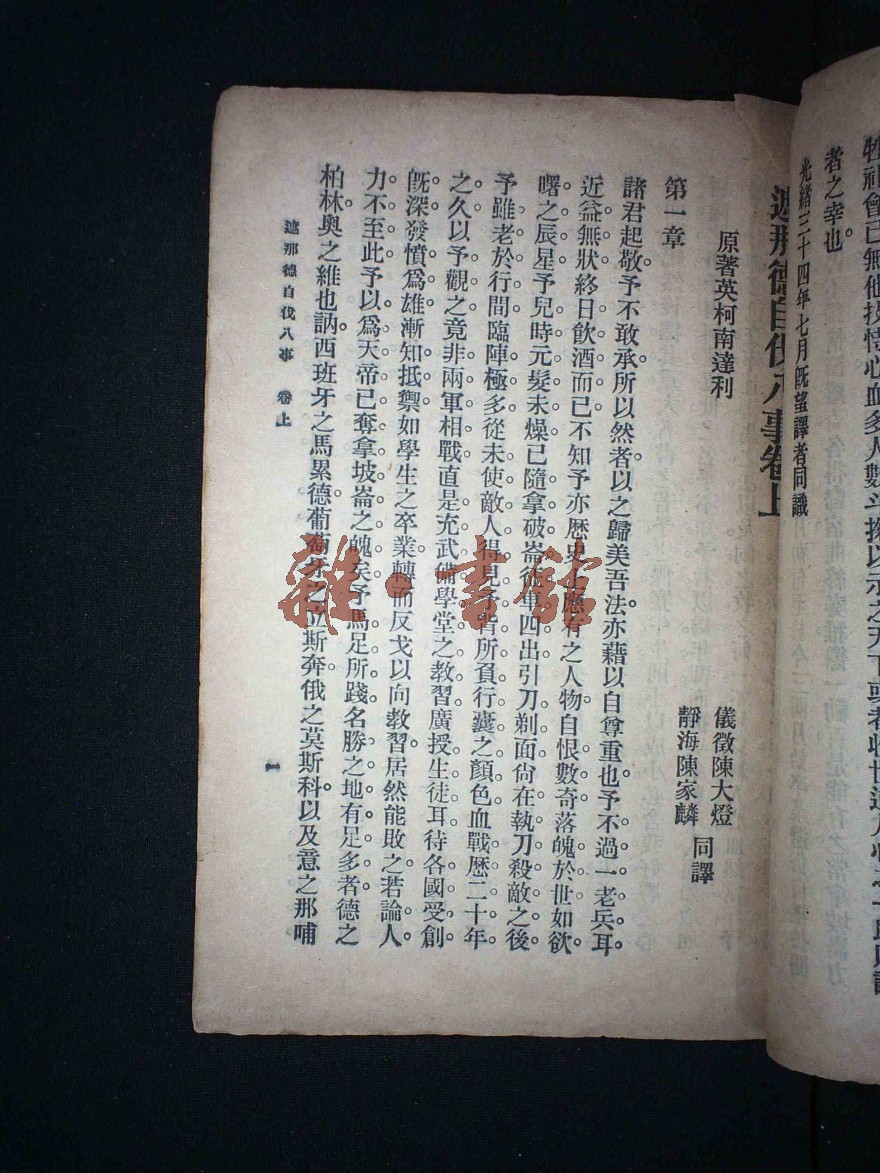 牲社會已無他技恃心血多人數斗
者之幸也。
光緒三十四年七月既望譯者同識
遮那德自伐八事卷上
原著英柯南達利
儀徵陳大燈
靜海陳家麟
同譯
第一章
諸君起敬予不敢承所以然者以之歸美吾法亦藉以自尊重也予不過一老兵耳。
近益無狀終日飲酒而已不知予亦歷史上應有之人物自恨數奇落魄於世如欲
曙之辰星予兒時元髮未燥已隨拿破崙從軍四出引刀剃面尙在執刀殺敵之後。
予雖老於行間臨陣極多從未使敵人得見予背所負行囊之顏色血戰歷二十年
之久以予觀之竟非兩軍相戰直是充武備學堂之教習廣授生徒耳待各國受創
旣深發憤爲雄漸知抵禦如學生之卒業轉而反戈以向教習居然能敗之若論人
力不至此予以爲天帝已奪拿坡崙之魄矣予馬足所踐名勝之地有足多者德之
柏林奥之維也訥西班牙之馬累德葡萄牙之立斯奔俄之莫斯科以及意之那哺
遮那德自伐八事 卷上
一
雜·書館